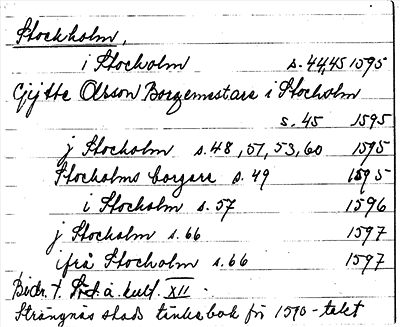 Stockholm,
i Stocholm s. 44,45 1595
Giytte Olsson Borgemestare i Stocholm
s. 45 1595
j Stocholm s. 48, 51, 53, 60 1595
Stocholms borgare s. 49 1595
i Stocholm s. 57 1596
j Stocholm s. 66 1597
ifrå Stocholm s. 66 1597
Bidr. t. Söd. a. kult. XII.
Strängnäs stads tänkebok för 1590-talet